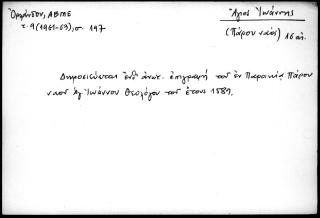 Ὀρλάνδου, ΑΒΜΕ
τ. 9 (1961-63), σ. 197
Ἅγιος Ἰωάννης
(Πάρου ναός) 16 αἰ.
Δημοσιεύεται ἐνθ' ἀνωτ. ἐπιγραφὴ τοῦ ἐν Παροικίᾳ Πάρου
ναοῦ Ἁγ Ἰωάννου Θεολόγου τοῦ ἔτους 1589.